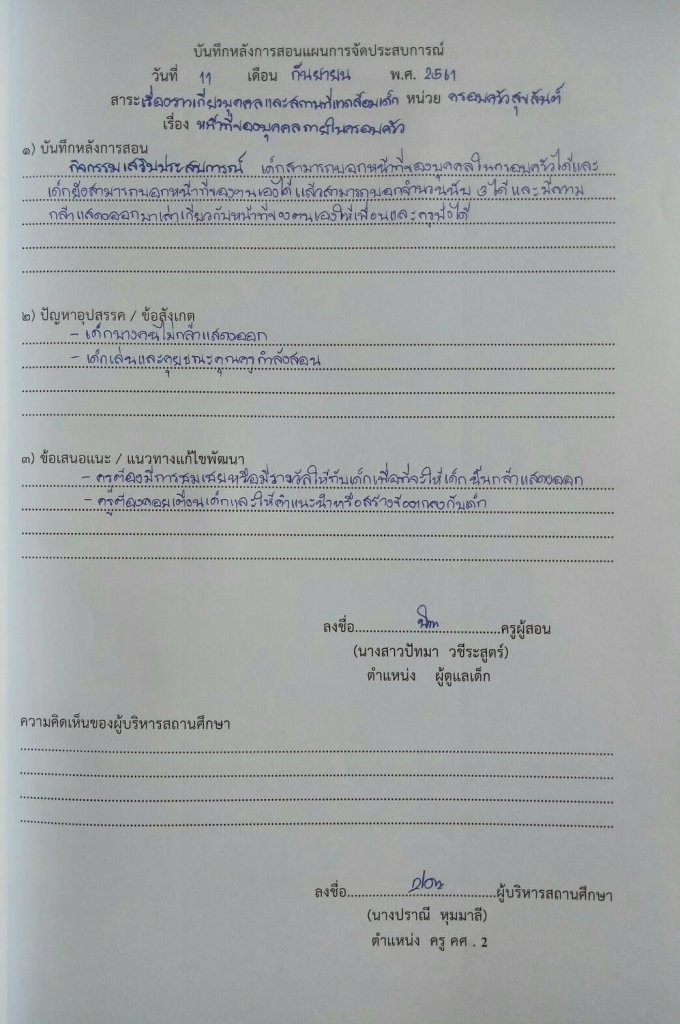 บันทึกหลังการสอนแผนการจัดประสบการณ์
วันที่ 11 เดือน กันยายน พ.ศ. 2561
สาระเรื่องราวเกี่ยวบุคคลและสถานที่แวดล้อมเด็ก หน่วย ครอบครัวสุขสันต์
เรื่อง หน้าที่ของบุคคลภายในครอบครัว
๑) บันทึกหลังการสอน
กิจกรรมเสริมประสบการณ์ เด็กสามารถบอกหน้าที่ของบุคคลในครอบครัวได้และ
เด็กยังสามารถบอกหน้าที่ของตนเองได้ แล้วสามารถบอกจำนวนนับ 3 ได้ และมีความ
กล้าแสดงออกมาเล่าเกี่ยวกับหน้าที่ของตนเองให้เพื่อนและครูฟังได้
๒) ปัญหาอุปสรรค / ข้อสังเกต
- เด็กบางคนไม่กล้าแสดงออก
- เด็กเล่นและคุยขณะคุณครูกำลังสอน
๓) ข้อเสนอแนะ / แนวทางแก้ไขพัฒนา
- ครูต้องมีการชมเชยหรือมีรางวัลให้กับเด็กเพื่อที่จะให้เด็กนั้นกล้าแสดงออก
- ครูต้องคอยเตือนเด็กและให้คำแนะนำหรือสร้างข้อตกลงกับเด็ก
ลงชื่อ................................ครูผู้สอน
(นางสาวปัทมา วชีระสูตร์)
ตำแหน่ง ผู้ดูแลเด็ก
ความคิดเห็นของผู้บริหารสถานศึกษา
ลงชื่อ................................ผู้บริหารสถานศึกษา
(นางปราณี หุมมาลี)
ตำแหน่ง ครู คศ. 2